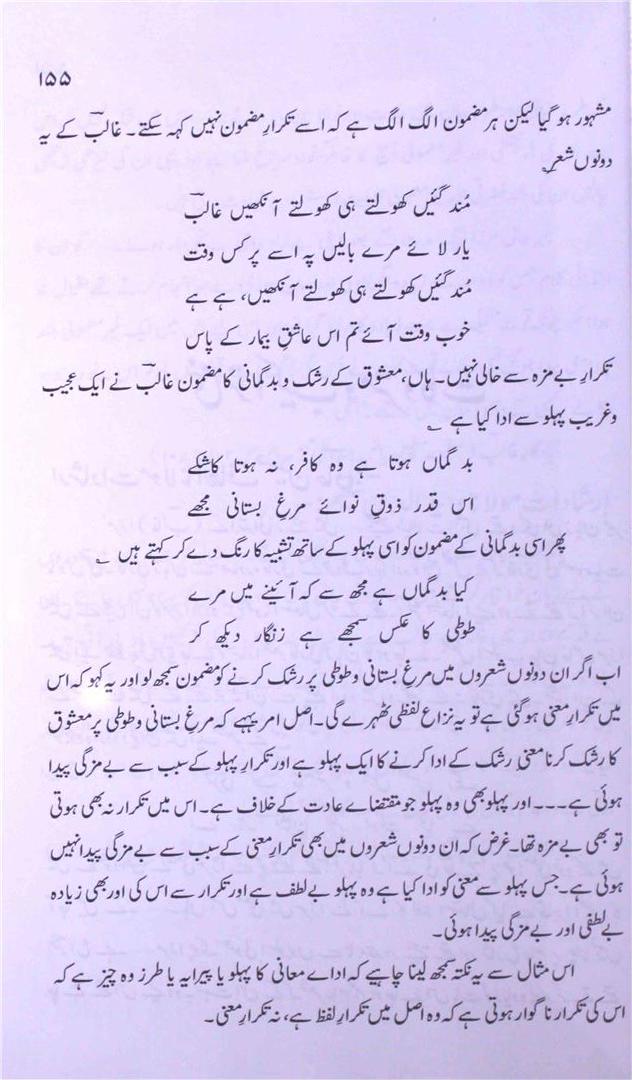 ۱۵۵
مشہور ہو گیا لیکن ہر مضمون الگ الگ ہے کہ اسے تکرارِ مضمون نہیں کہہ سکتے۔ غالبؔ کے یہ
دونوں شعر؎
مُند گئیں کھولتے ہی کھولتے آنکھیں غالبؔ
یار لائے مرے بالیں پہ اسے پر کس وقت
مُند گئیں کھولتے ہی کھولتے آنکھیں، ہے ہے
خوب وقت آئے تم اس عاشقِ بیمار کے پاس
تکرارِ بے مزہ سے خالی نہیں۔ ہاں، معشوق کے رشک و بدگمانی کا مضمون غالبؔ نے ایک عجیب
و غریب پہلو سے ادا کیا ہے ؎
بد گماں ہوتا ہے وہ کافر، نہ ہوتا کاشکے
اس قدر ذوقِ نوائے مرغِ بستانی مجھے
پھر اسی بدگمانی کے مضمون کو اسی پہلو کے ساتھ تشبیہ کا رنگ دے کر کہتے ہیں ؎
کیا بدگماں ہے مجھ سے کہ آئنے میں مرے
طوطی کا عکس سمجھے ہے زنگار دیکھ کر
اب اگر ان دونوں شعروں میں مرغِ بستانی و طوطی پر رشک کرنے کو مضمون سمجھ لو اور یہ کہو کہ اس
میں تکرارِ معنی ہو گئی ہے تو یہ نزاع لفظی ٹھہرے گی۔ اصل امر یہ ہے کہ مرغِ بستانی و طوطی پر معشوق
کا رشک کرنا معنیِ رشک کے ادا کرنے کا ایک پہلو ہے اور تکرارِ پہلو کے سبب سے بے مزگی پیدا
ہوئی ہے۔۔۔ اور پہلو بھی وہ پہلو جو مقتضاے عادت کے خلاف ہے۔ اس میں تکرار نہ بھی ہوتی
تو بھی بے مزہ تھا۔ غرض کہ ان دونوں شعروں میں بھی تکرارِ معنی کے سبب سے بے مزگی پیدا نہیں
ہوئی ہے۔ جس پہلو سے معنی کو ادا کیا ہے وہ پہلو بے لطف ہے اور تکرار سے اس کی اور بھی زیادہ
بے لطفی اور بے مزگی پیدا ہوئی۔
اس مثال سے یہ نکتہ سمجھ لینا چاہیے کہ اداے معانی کا پہلو یا پیرایہ یا طرز وہ چیز ہے کہ
اس کی تکرار ناگوار ہوتی ہے کہ وہ اصل میں تکرارِ لفظ ہے، نہ تکرارِ معنی۔